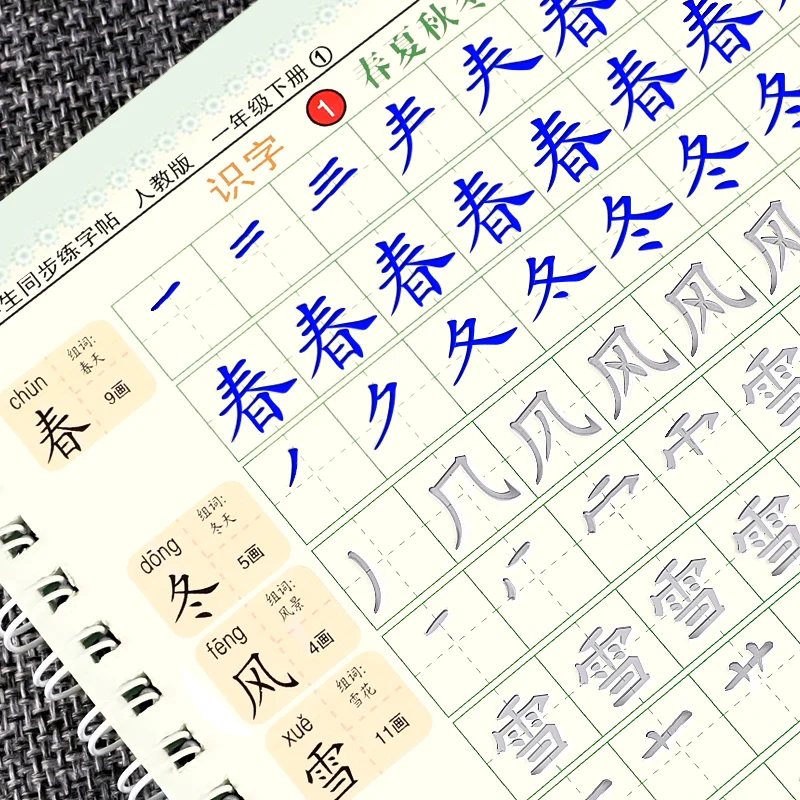 生同步练字帖 人教版 一年级下册①
识字 1 春夏秋冬
chūn
组词:
春天
春
9画
一 二 三 春
春 春 春 春 春 春 春
dōng
组词:
冬天
冬
5画
丿 夕 夂 冬 冬 冬
fēng
组词:
风景
风
4画
丿 几 风 风 风 风
xuě
组词:
雪花
雪
11画
雪
雪 雪 雪 雪